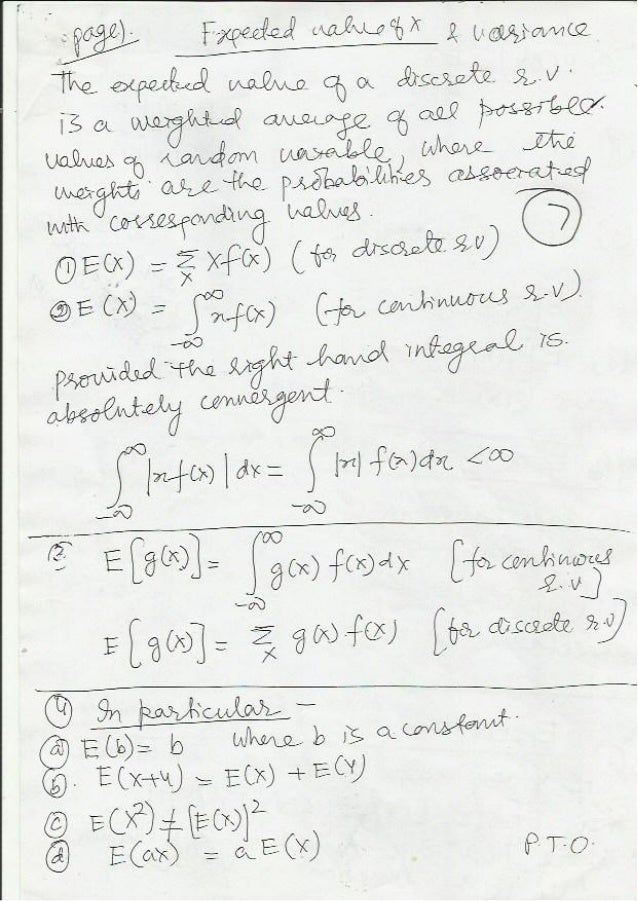 :page). Expected value of x & variance
The expected value of a discrete r.v.
is a weighted average of all possible
values of random variable, where the
weights are the probabilities associated
with corresponding values.
7
① E(X) = Σ_x Xf(x) (for discrete r.v)
② E(X) = ∫_{-∞}^{∞} xf(x) (for continuous r.v).
provided the right hand integral is
absolutely convergent.
∫_{-∞}^{∞} |xf(x)| dx = ∫_{-∞}^{∞} |x| f(x) dx < ∞
③ E[g(x)] = ∫_{-∞}^{∞} g(x) f(x) dx [for continuous r.v]
E[g(x)] = Σ_x g(x) f(x) [for discrete r.v]
④ In particular –
ⓐ E(b) = b where b is a constant.
ⓑ. E(x+y) = E(x) + E(Y)
ⓒ E(X²) ≠ [E(x)]²
ⓓ E(ax) = a E(x)
P.T.O.